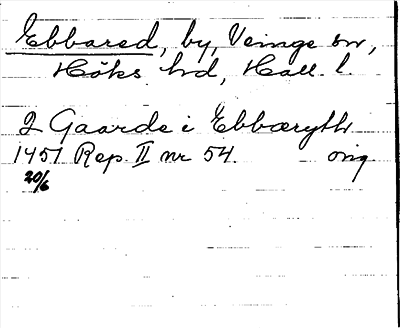 Ebbared, by, Veinge sn,
Höks hd, Hall. l.
2 Gaarde i Ebbæryth
1451 Rep. II nr 54. orig
20/6